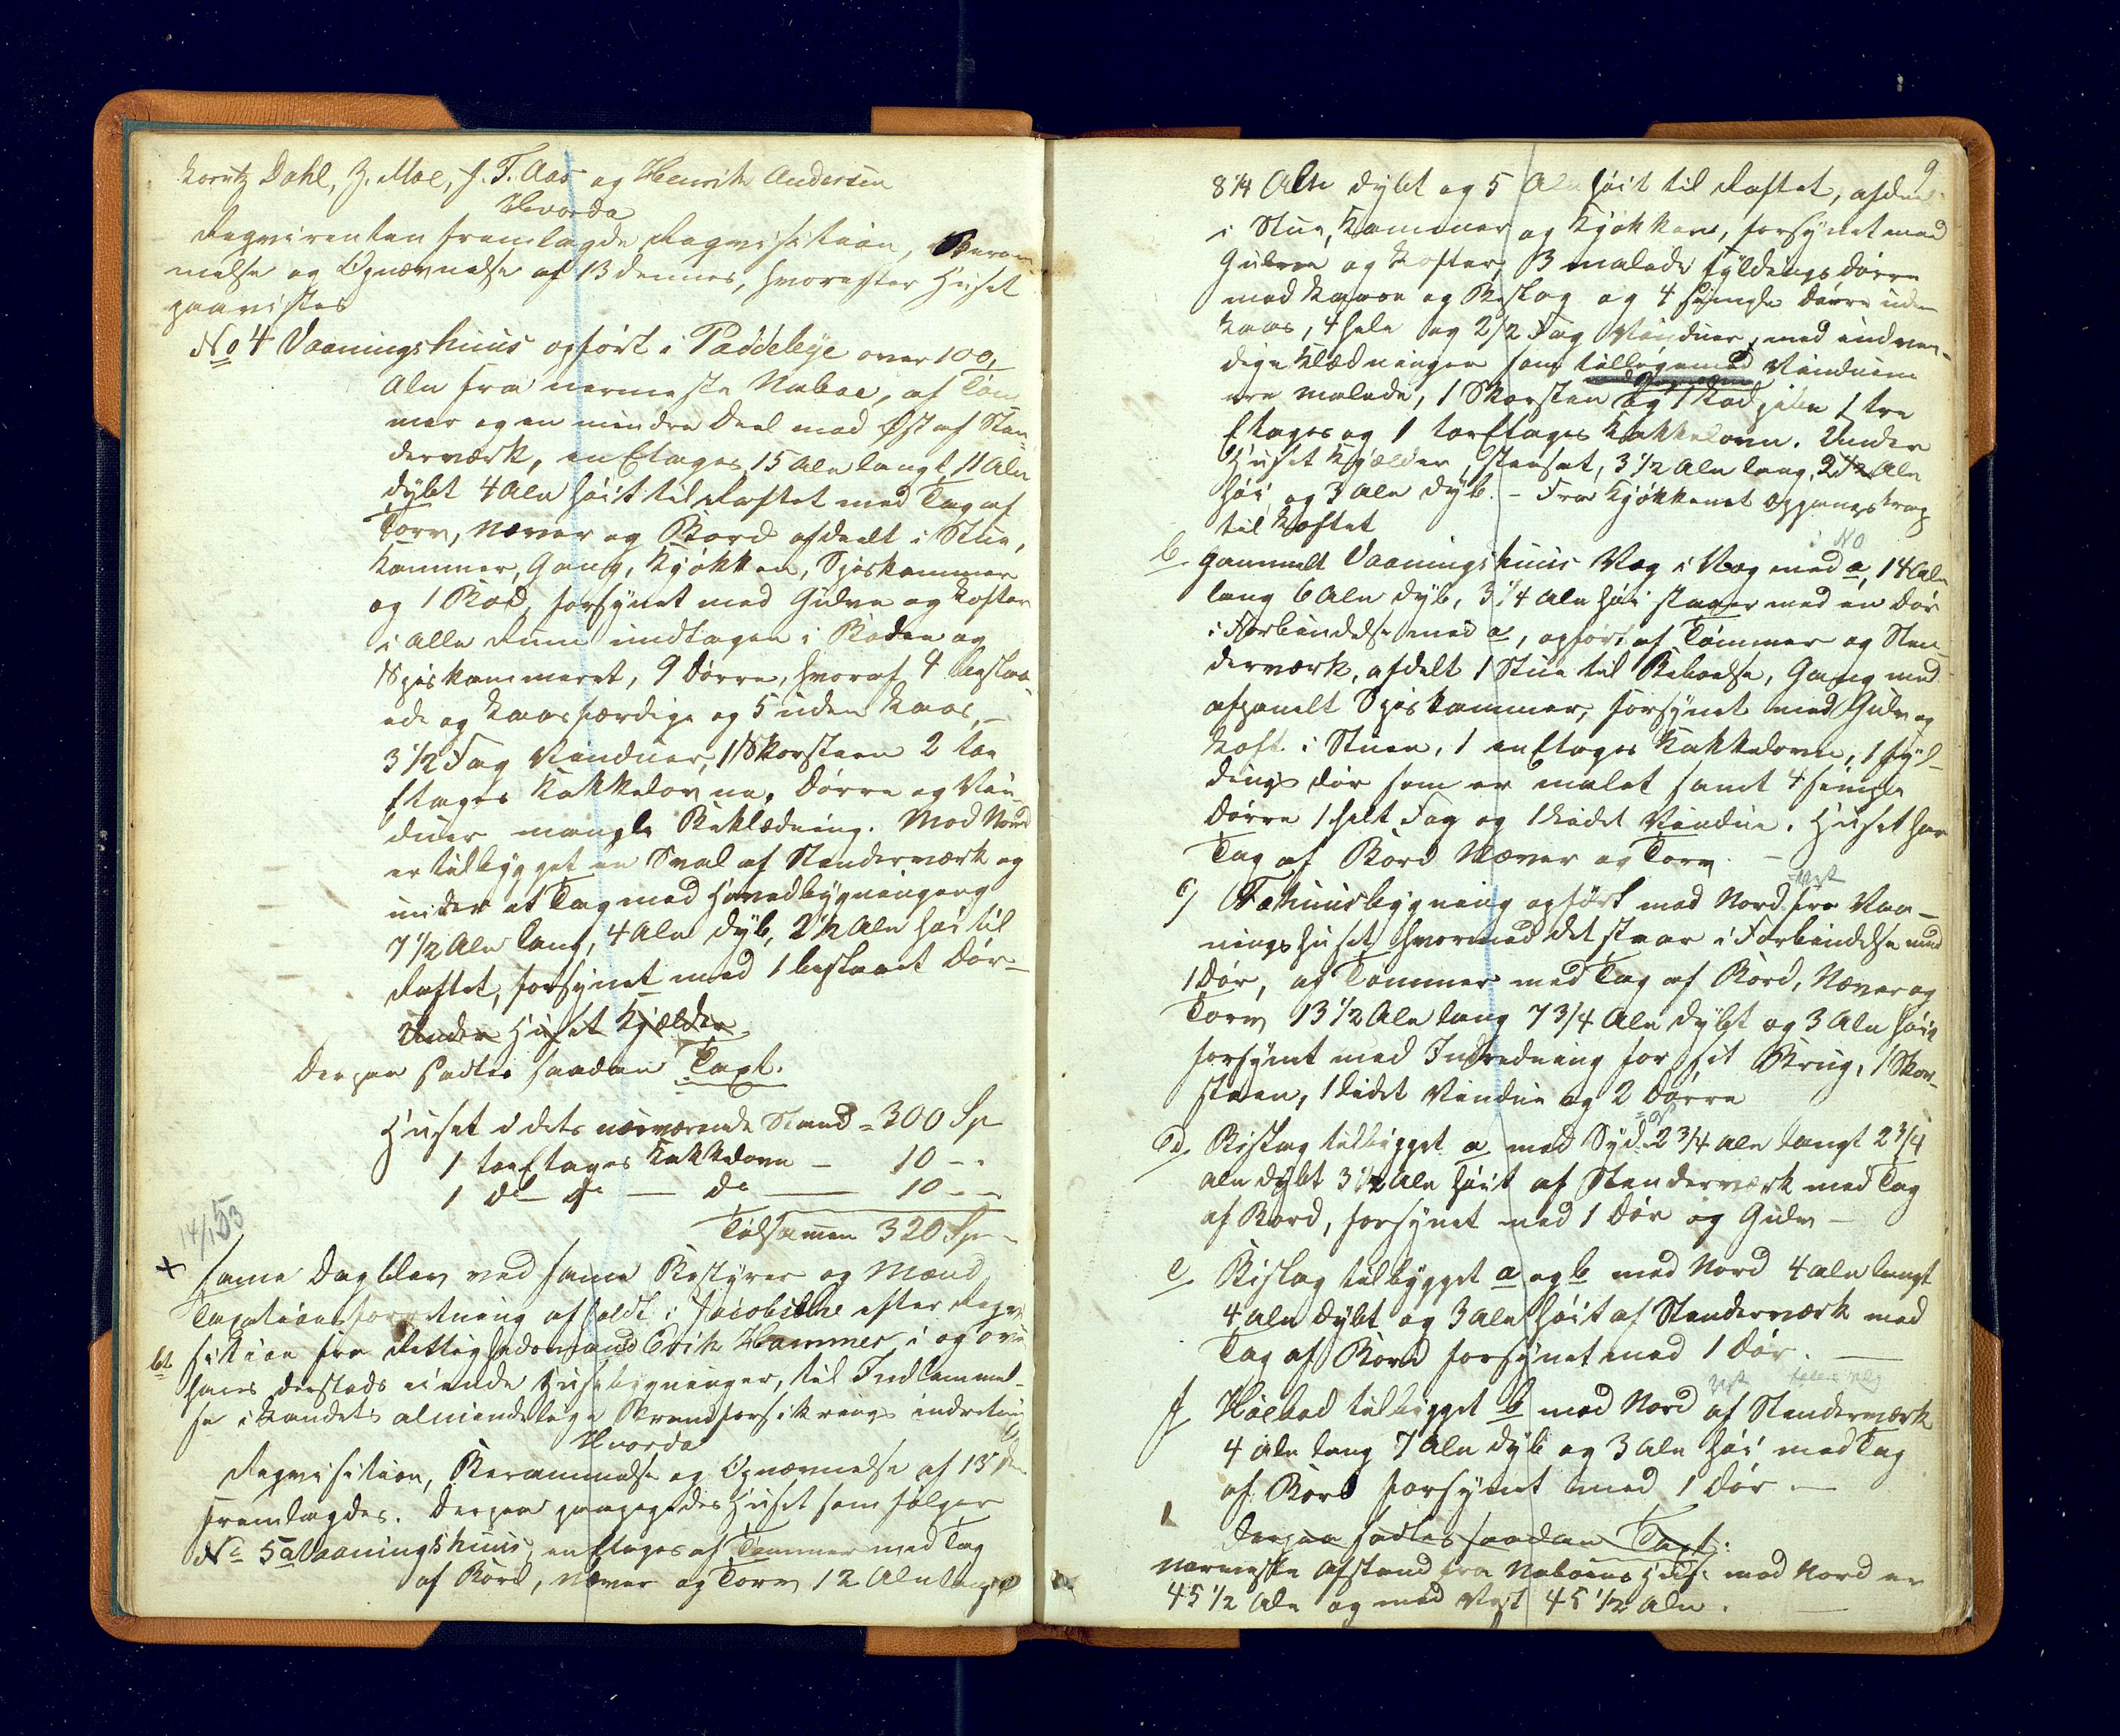 Loretz Dahl, J. Moe, J. T. Aas og Henrik Andersen
Hvorda
Reqvirenten fremlagde Reqvisition, Beram-
melse og Opnævnelse af 13 dennes, hvorefter Huset
paavistes
No 4 Vaaningshuus opført i Paddeleje over 100
Aln fra nærmeste Naboe, af Tøm
mer og en mindre Deel mod Øst af Sten-
derværk, en Etages 15 Aln langt, 11 Aln
dybt 4 Aln høit til Raftet med Tag af
Torv, Næver og Bord afdeelt i Stue,
Kammer, Gang, Kjøkken, Spiskammer
og 1 Bod, forsynet med Gulve og Lofter
i alle Rum undtagen i Boden og
Spiskammeret, 9 Dørre, hvoraf 4 beslaa-
ede og Laasfærdige og 5 uden Laas, –
3 1/2 Fag Vinduer, 1 Skorsteen 2 toe
Etages Kakkelovne, Dørre og Vin-
duer mangle Beklædning. Mod Nord
er tilbygget en Sval af Stenderværk og
under et Tag med Hovedbygningen
7 1/2 Aln lang, 4 Aln dyb, 2 1/2 Aln høi til
Raftet, forsynet med 1 beslaaet Dør –
Under Huset Kjælder.
Derpaa sattes saadan Taxt.
Huset i dets nærværende Stand = 300 Sp
1 toeEtages Kakkelovn – 10 – "
1 do do — do — 10 – –
Tilsamen 320 Sp –
14/1 53
+ Same Dag blev ved same Bestyrer og Mænd
Taxationsforretning afholdt i Jacobselv efter Reqvi
sition fra Rettighedsmand Erik Hammer, i og over
bt
hans dersteds eiende Husebygninger, til Indlemmel-
se i Landets almindelige Brandforsikrings indretning
Hvorda
Reqvisition, Berammelse og Opnævnelse af 13 den
fremlagdes. Derpaa paapegedes Huset som følger
No 5 a Vaaningshuus, en Etages af Tømmer med Tag
af Bord, Næver og Torv 12 Aln langt
9
8 1/4 Aln dybt og 5 Aln høit til Raftet, afdeel
i Stue, Kammer og Kjøkken, forsynet med
Gulve og Lofter, 3 malede Fyldings Dørre
med Laase og Beslag og 4 simple Dørre uden
Laas, 4 hele og 2 1/2 Fag Vinduer, med indven-
dige Klædninger som tilligemed Vinduerne
ere malede, 1 Skorsteen og 1 1 tre
Etages og 1 toeEtages Kakkelovn. Under
Huset Kjælder, steensat, 3 1/2 Aln lang, 2 1/2 Aln
høi og 3 Aln dyb. – Fra Kjøkkenet Opgangstrap
til Loftet
i NO
b. gammelt Vaaningshuus Væg i Væg med a, 14 Aln
lang 6 Aln dyb, 3 1/4 Aln høi staaer med en Dør
i Forbindelse med a, opført af Tømmer og Sten-
derværk, afdelt 1 Stue til Beboelse, Gang med
afpanelt Spiskammer, forsynet med Gulv og
Loft i Stuen, 1 en Etages Kakkelovn, 1 Fyl-
dings Dør som er malet samt 4 simple
Dørre 1 helt Fag og 1 lidet Vindue. Huset har
Tag af Bord Næver og Torv. –
=vest
c) Fæhuusbygning opført mod Nord fra Vaa-
ningshuset hvormed det staar i Forbindelse med
1 Dør, af Tømmer med Tag af Bord, Næver og
Torv 13 1/2 Aln lang 7 3/4 Aln dybt og 3 Aln høit
forsynt med Indredning for sit Brug, 1 Skor-
steen, 1 lidet Vindue og 2 Dørre
d. Bislag tilbygget a mod Syd 2 3/4 Aln langt 2 3/4
Aln dybt 3 1/2 Aln høit af Stenderværk med Tag
af Bord, forsynet med 1 Dør og Gulv –
e. Bislag tilbygget a og b mod Nord 4 Aln langt
4 Aln dybt og 3 Aln høit af Stenderværk med
Tag af Bord forsynet med 1 Dør. —
vest
f Høebod tilbygget b mod Nord af Stenderværk
4 Aln lang 7 Aln dyb og 3 Aln høi med Tag
af Bord forsynet med 1 Dør. —
Derpaa sattes saadan Taxt.
Nærmeste Afstand fra Naboens Huse mod Nord er
45 1/2 Aln og mod Vest 45 1/2 Aln. —